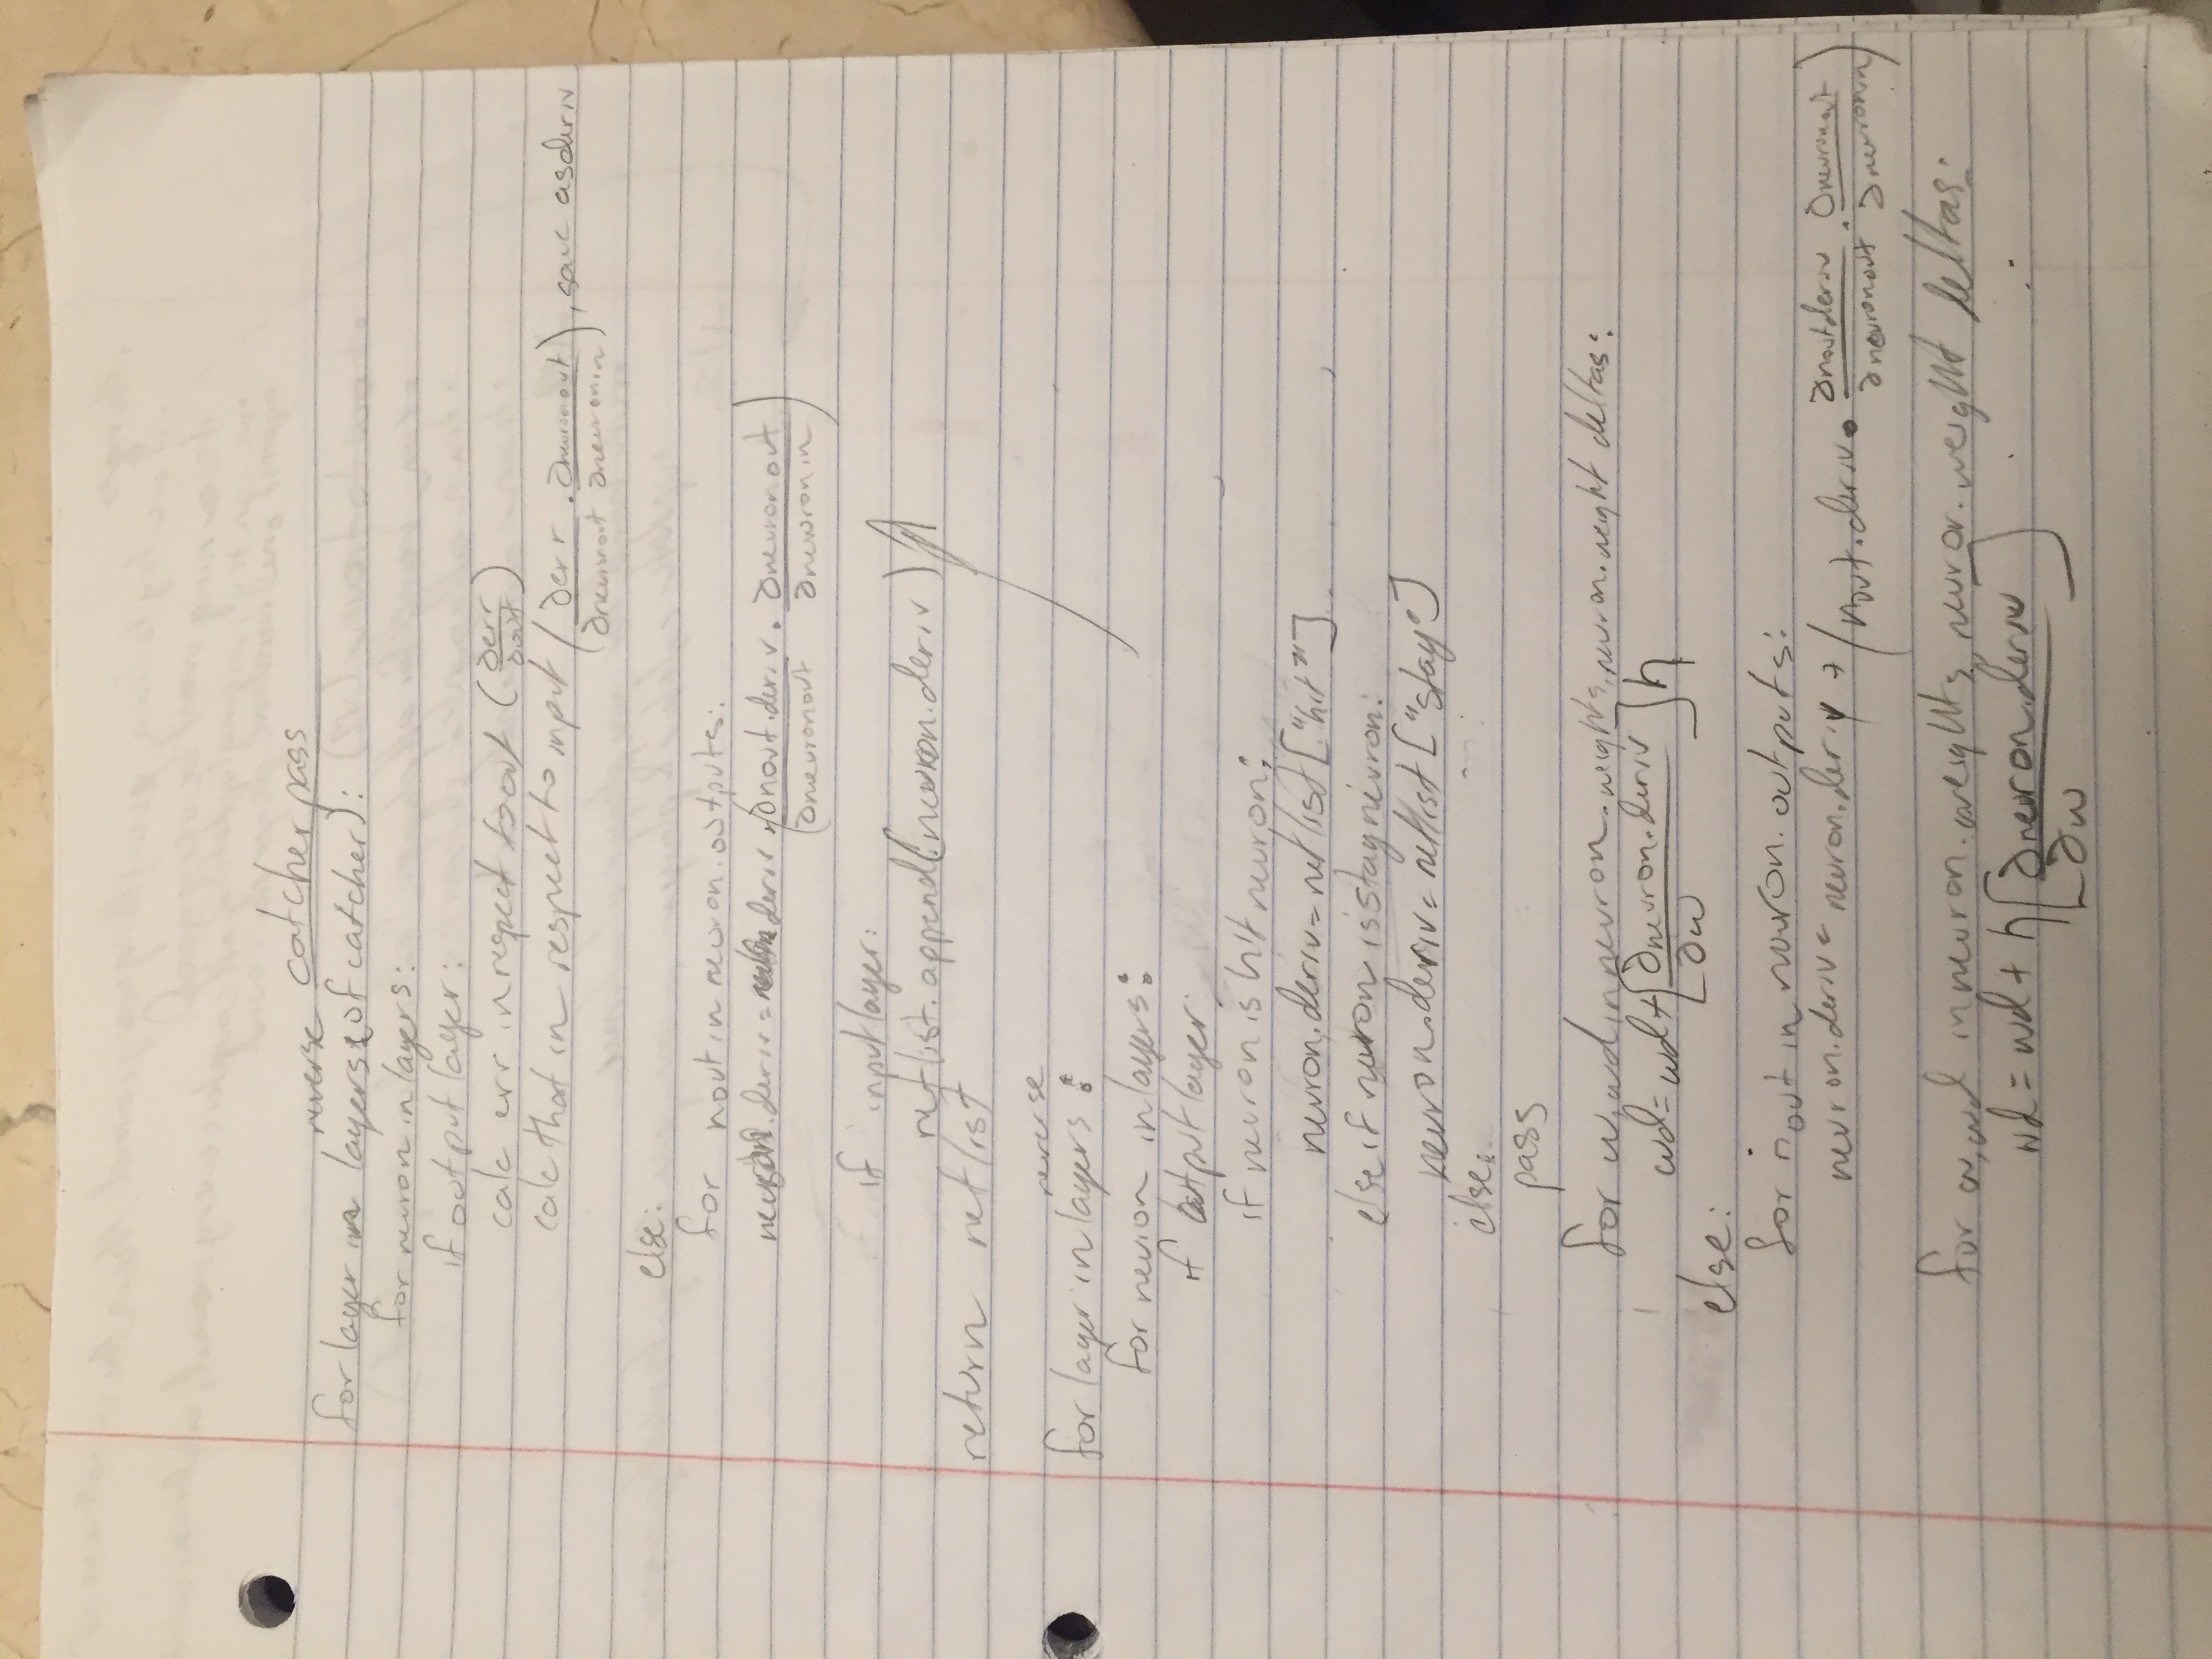 catcher pass
reverse
for layer in layers (of catcher):
for neuron in layers:
if output layer:
calc err in respect to out (∂err/∂out)
calc that in respect to input (∂err/∂neuronout · ∂neuronout/∂neuronin), save as deriv
else:
for nout in neuron.outputs:
neuron.deriv = deriv · (∂nout.deriv/∂neuronout · ∂neuronout/∂neuronin)
if input layer:
netlist.append(neuron.deriv)
return netlist
reverse
for layer in layers:
for neuron in layers:
if output layer:
if neuron is hit neuron:
neuron.deriv = netlist["hit"]
else if neuron is stay neuron:
neuron.deriv = netlist["stay"]
else:
pass
for w, wd in neuron.weights, neuron.weight deltas:
wd = wd + [∂neuron.deriv/∂w] η
else:
for nout in neuron.outputs:
neuron.deriv = neuron.deriv + (nout.deriv · ∂noutderiv/∂neuronout · ∂neuronout/∂neuronin)
for w, wd in neuron.weights, neuron.weight deltas:
wd = wd + η [∂neuron.deriv/∂w]